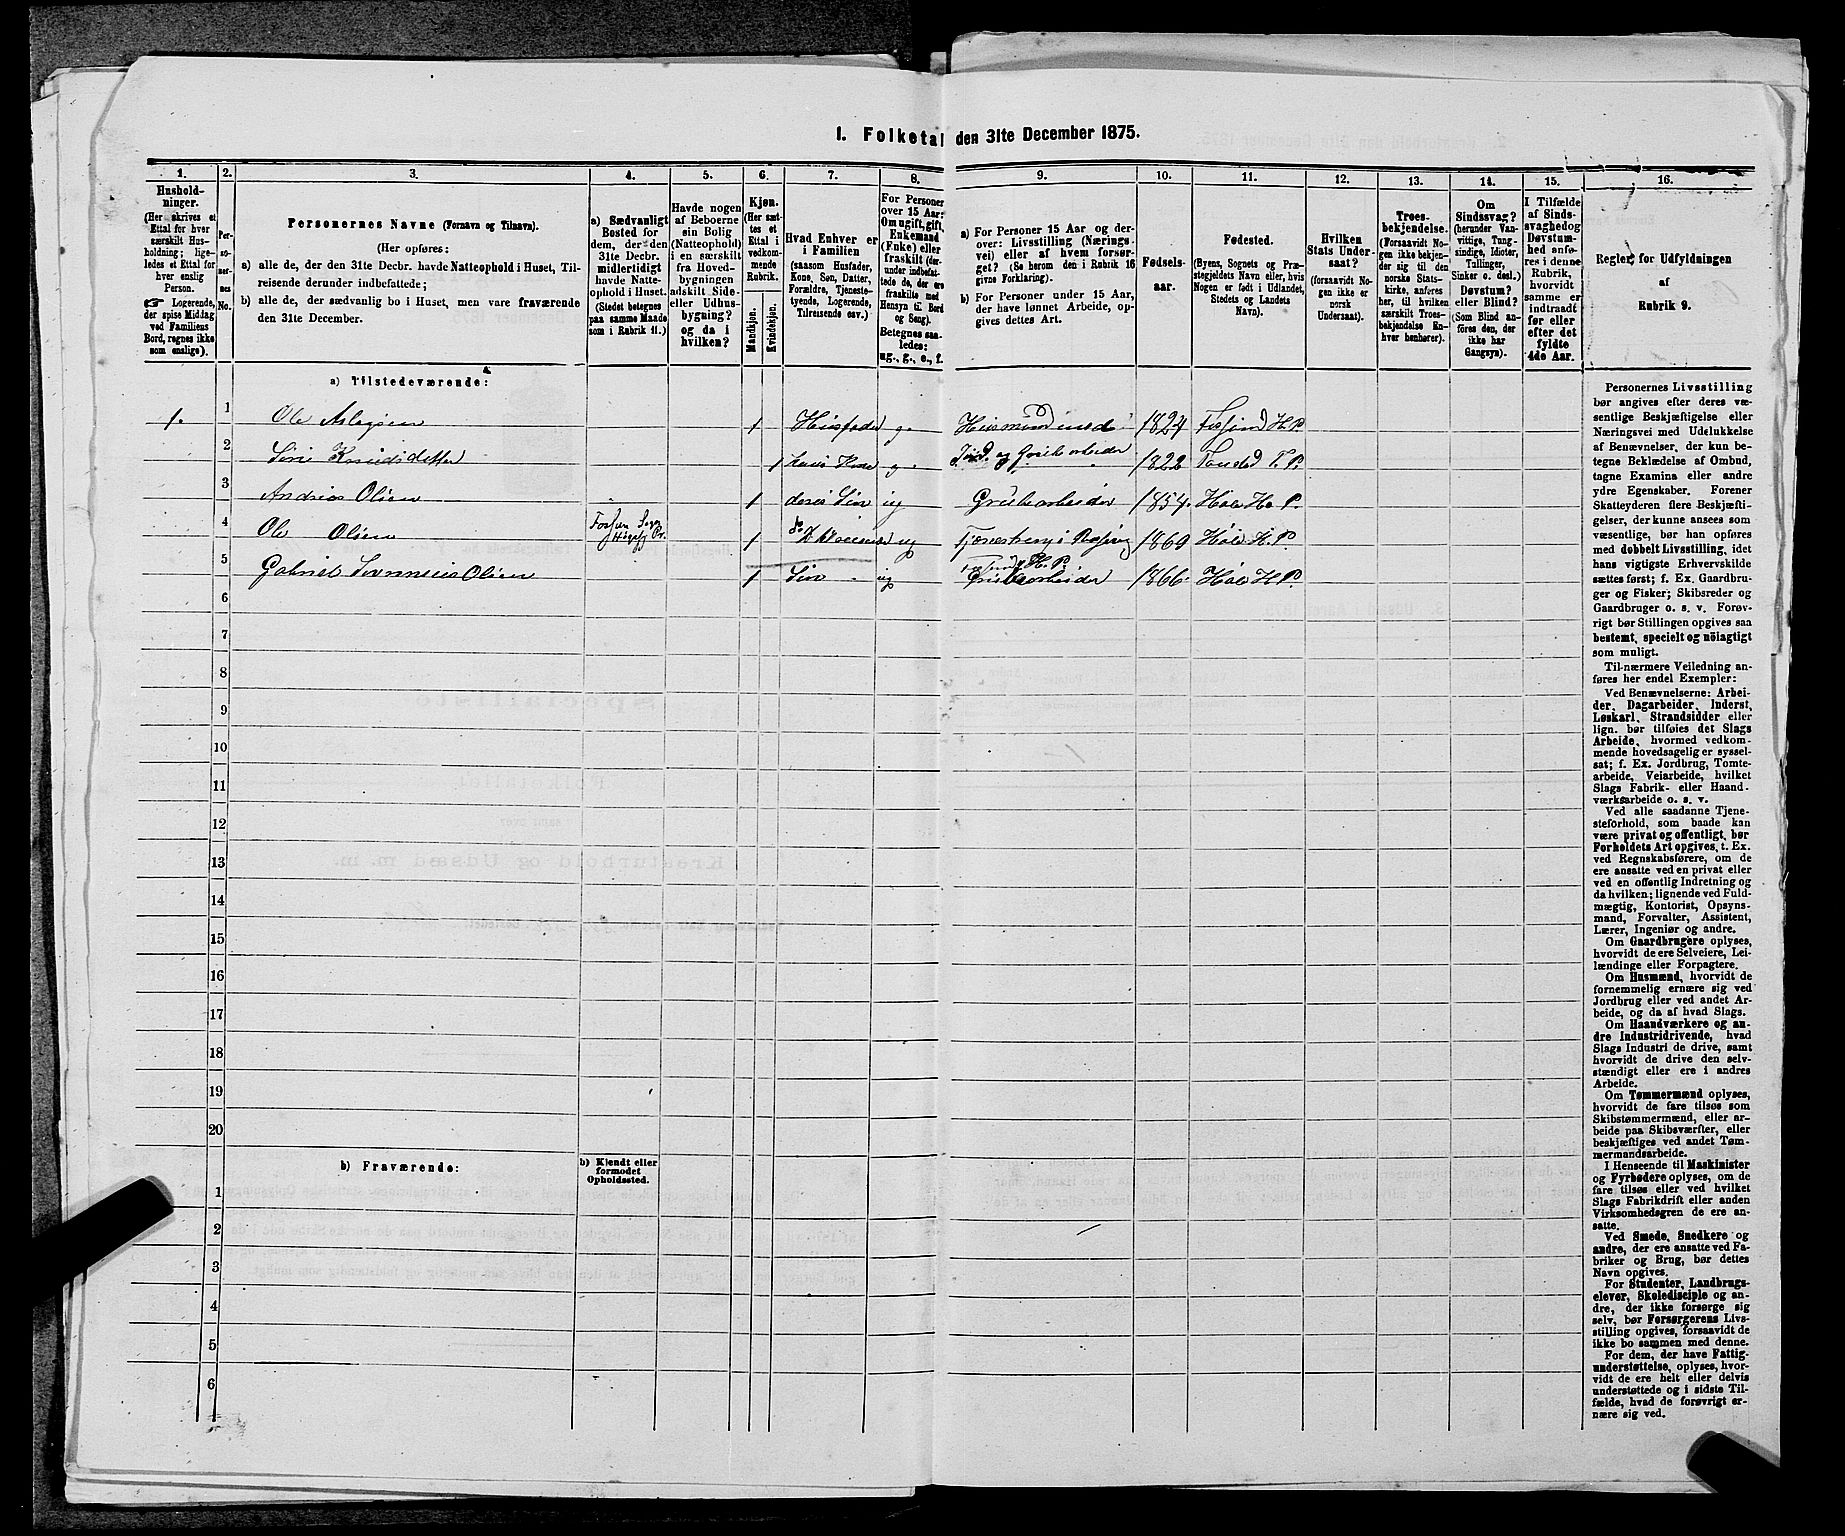 1. Folketal den 31te December 1875.
1. 2. 3. 4. 5. 6. 7. 8. 9. 10. 11. 12. 13. 14. 15. 16.
Hushold-
ninger.
(Her skrives et
Ettal for hver
særskilt Hus-
holdning; lige-
ledes et Ettal for
hver enslig
Person.
Logerende,
der spise Middag
ved Familiens
Bord, regnes ikke
som enslige).
Per-
so-
ner-
nes
No.
Personernes Navne (Fornavn og Tilnavn).
(Her opføres:
a) alle de, der den 31te Decbr. havde Natteophold i Huset, Til-
reisende derunder indbefattede;
b) alle de, der sædvanlig bo i Huset, men vare fraværende
den 31te December.
a) Sædvanligt
Bosted for
dem, der den
31te Decbr.
midlertidigt
havde Natte-
ophold i Huset.
(Stedet betegnes
paa samme Maade
som i Rubrik 11.)
Havde nogen
af Beboerne
sin Bolig
(Natteophold)
i en særskilt
fra Hoved-
bygningen
adskilt Side-
eller Udhus-
bygning?
og da i
hvilken?
Kjøn.
(Her sæt-
tes et
Ettal i
vedkom-
mende
Rubrik.
Mandkjøn.
Kvindekjøn.
Hvad Enhver er
i Familien
(saasom Husfader,
Kone, Søn, Datter,
Forældre, Tjeneste-
tyende, Logerende,
Tilreisende osv.)
For Personer
over 15 Aar:
Om ugift, gift,
Enkemand
(Enke) eller
fraskilt (der-
under indbefat-
tede de, der ere
fraskilte med
Hensyn til Bord
og Seng).
Betegnes saa-
ledes:
ug., g., e., f.
a) For Personer 15 Aar og der-
over: Livsstilling (Nærings-
vei) eller af hvem forsør-
get? (Se herom den i Rubrik 16
givne Forklaring).
b) For Personer under 15 Aar,
der have lønnet Arbeide, op-
gives dettes Art.
Fødsels-
aar.
Fødested.
(Byens, Sognets og Præ-
stegjeldets Navn eller, hvis
Nogen er født i Udlandet,
Stedets og Landets
Navn).
Hvilken
Stats Under-
saat?
(forsaavidt No-
gen ikke er
norsk
Undersaat).
Troes-
bekjendelse.
(Forsaavidt No-
gen ikke bekjen-
der sig til den
norske Stats-
kirke, anføres
her, til hvilken
særskilt Troes-
bekjendelse En-
hver henhører).
Om
Sindssvag?
(herunder Van-
vittige, Tung-
sindige, Idioter,
Tullinger,
Sinker o. desl.)
Døvstum?
eller Blind?
(Som Blind an-
føres den, der
ikke har
Gangsyn).
I Tilfælde
af Sinds-
svaghed og
Døvstum-
hed anfø-
res i denne
Rubrik,
hvorvidt
samme er
indtraadt
før eller
efter det
fyldte
4de Aar.
Regler for Udfyldningen
af
Rubrik 9.
a) Tilstedeværende:
1. 1 Ole Aslagsen 1 Husfader g. Husmand med 1824 Fossum H.P.
2 Siri Knudsdatter 1 hans Kone g. Jord og Grubearbeider 1822
3 Andreas Olsen 1 deres Søn ug Grubearbeider 1854. Hole H. P.
4 Ole Olsen 1 ug 1860 Hole H. P.
5 Gabriel Olsen 1 Søn ug Grubearbeider 1866. Hole H P.
6
7
8
9
10
11
12
13
14
15
16
17
18
19
20
b) Fraværende:
b) Kjendt eller
formodet
Opholdssted.
1
2
3
4
5
6
Personernes Livsstilling
bør angives efter deres væ-
sentlige Beskjæftigelse eller
Næringsvei med Udelukkelse
af Benævnelser, der kun be-
tegne Beklædelse af Ombud,
tagne Examina eller andre
ydre Egenskaber. Forener
Skatteyderen flere Beskjæfti-
gelser, der kunne ansees som
væsentlige, bør han opføres
med dobbelt Livsstilling, idet
hans vigtigste Erhvervskilde
sættes først; f. Ex. Gaardbru-
ger og Fisker; Skibsreder og
Gaardbruger o. s. v. Forøv-
rigt bør Stillingen opgives saa
bestemt, specielt og nöiagtigt
som muligt.
Til nærmere Veiledning an-
føres her endel Exempler:
Ved Benævnelserne: Arbei-
der, Dagarbeider, Inderst,
Løskarl, Strandsidder eller
lign. bør tilføies det Slags
Arbeide, hvormed vedkom-
mende hovedsagelig er syssel-
sat; f. Ex. Jordbrug, Tomte-
arbeide, Veiarbeide, hvilket
Slags Fabrik- eller Haand-
værksarbeide o. s. v.
Ved alle saadanne Tjene-
steforhold, som baade kan
være privat og offentligt, bør
Forholdets Art opgives, t. Ex.
ved Regnskabsførere, om de
ere ansatte ved en privat eller
ved en offentlig Indretning og
da hvilken; lignende ved Fuld-
mægtig, Kontorist, Opsyns-
mand, Forvalter, Assistent,
Lærer, Ingeniør og andre.
Om Gaardbrugere oplyses,
hvorvidt de ere Selveiere, Lei-
lændinge eller Forpagtere.
Om Husmænd, hvorvidt de
fornemmelig ernære sig ved
Jordbrug eller ved andet Ar-
beide, og da af hvad Slags.
Om Haandværkere og an-
dre Industridrivende, hvad
Slags Industri de drive, samt
hvorvidt de drive den selv-
stændigt eller ere i andres
Arbeide.
Om Tømmermænd oplyses,
hvorvidt de fare tilsøs som
Skibstømmermænd, eller ar-
beide paa Skibsværfter, eller
beskjæftiges ved andet Tøm-
mermandsarbeide.
I Henseende til Maskinister
og Fyrbødere oplyses, om de
fare tilsøs eller ved hvilket
Slags Fabrikdrift eller anden
Virksomhedsgren de ere an-
satte.
Ved Smede, Snedkere og
andre, der ere ansatte ved Fa-
briker og Brug, bør dettes
Navn opgives.
For Studenter, Landbrugs-
elever, Skoledisciple og an-
dre, der ikke forsørge sig
selv, bør Forsørgerens Livs-
stilling opgives, forsaavidt de
ikke bo sammen med denne.
For dem, der have Fattig-
understøttelse, oplyses, hvor-
vidt de ere helt eller delvis
understøttede og i sidste Til-
fælde, hvad de forøvrigt er-
nære sig ved.